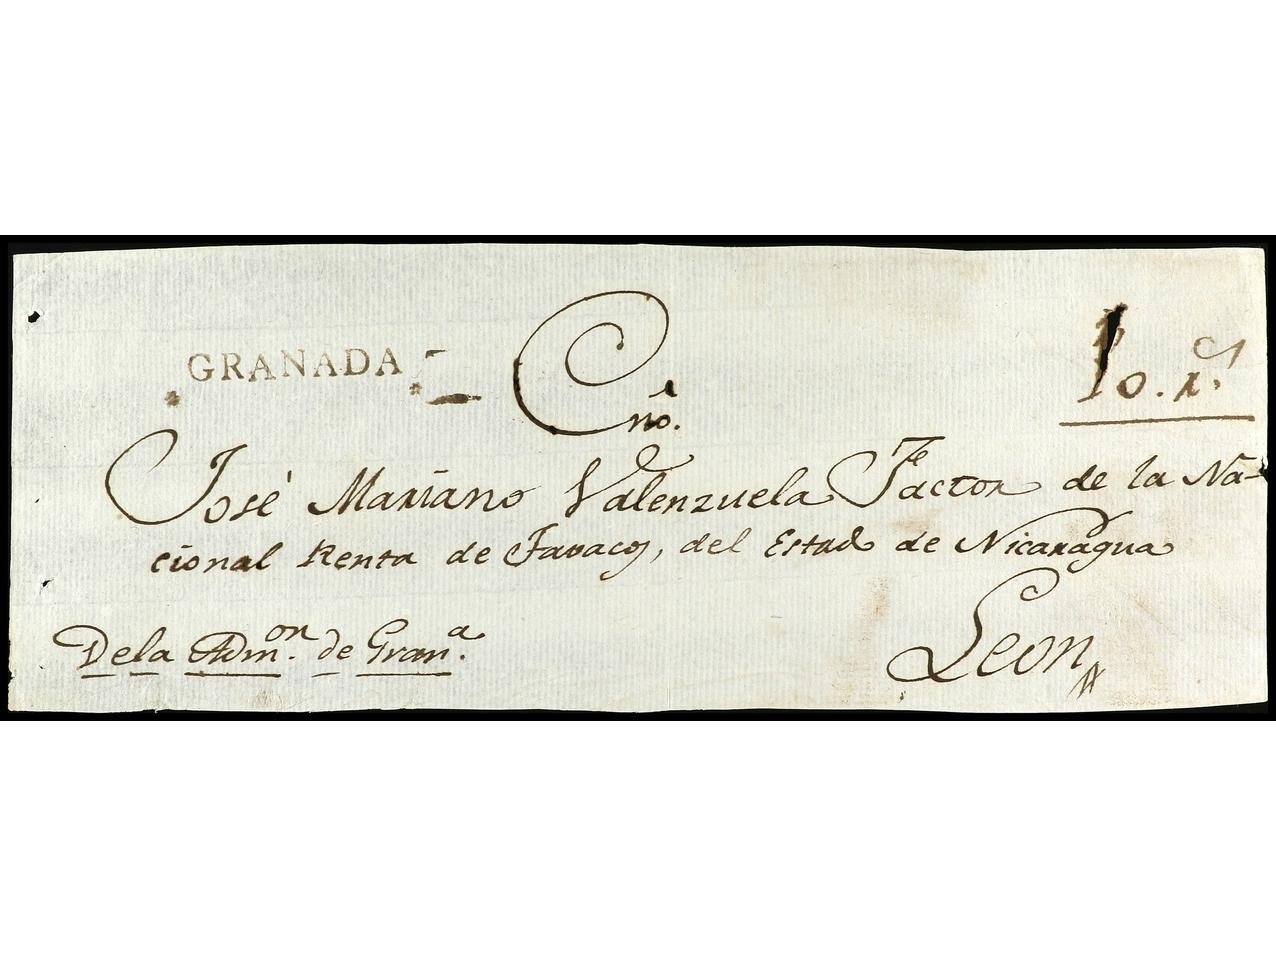 GRANADA
Cnô.
10. rs.
José Mariano Valenzuela Factor de la Na-
cional Renta de Tavacos, del Estado de Nicaragua
Leon
De la Admon. de Grana.